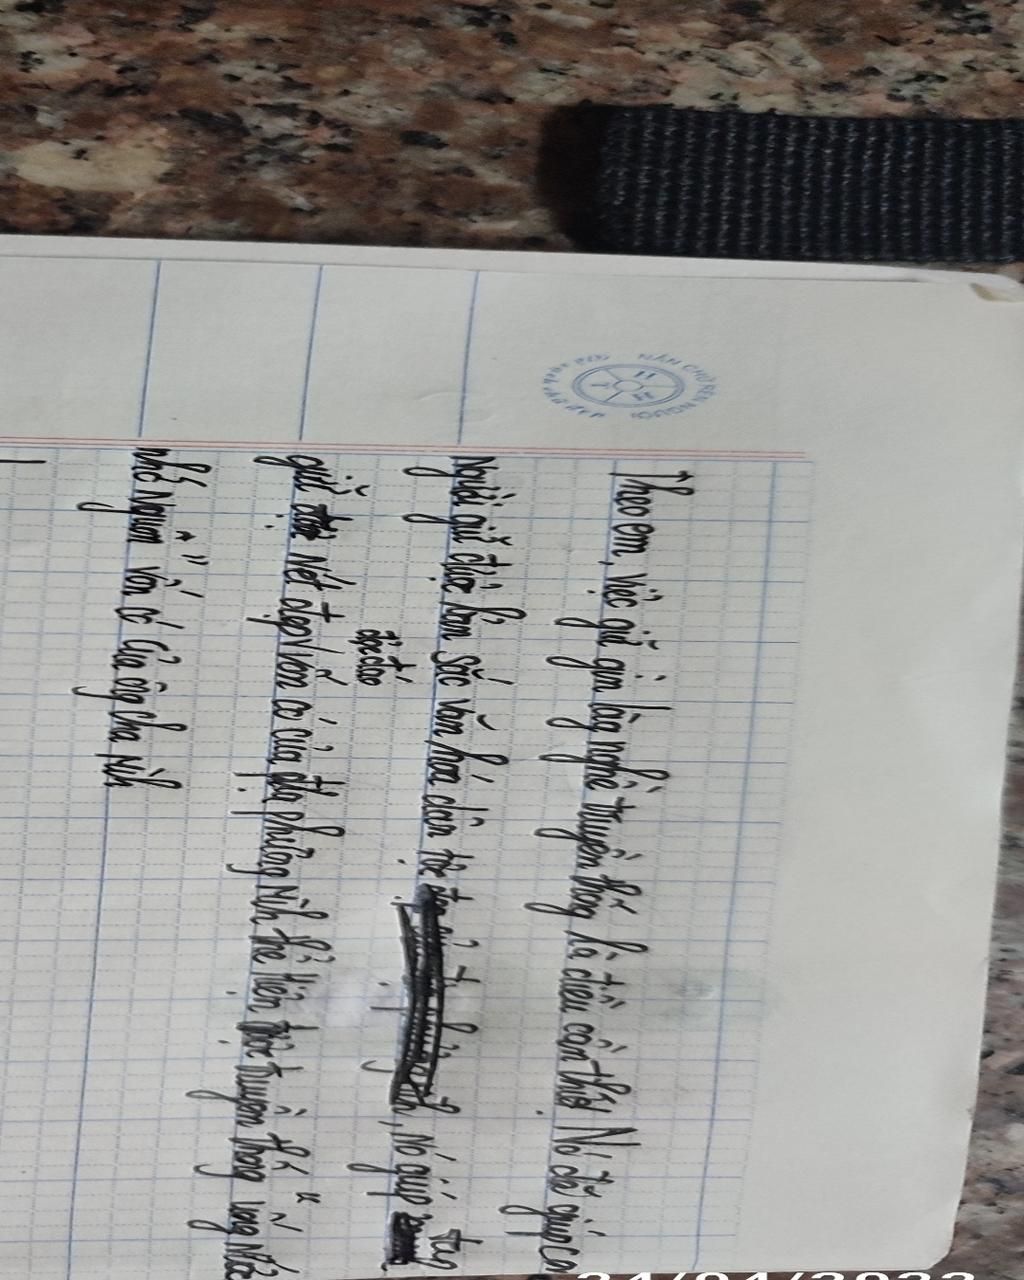 NẮN CHỮ RÈN NGƯỜI
Theo em, việc giữ gìn làng nghề truyền thống là điều cần thiết. Nó đã giúp co
Người giữ được bản sắc văn hóa dân tộc, nó giúp
được các
giữ nét đẹp vốn có của địa phương mình thể hiện được truyền thống uống nước
nhớ nguồn vốn có của ông cha mình